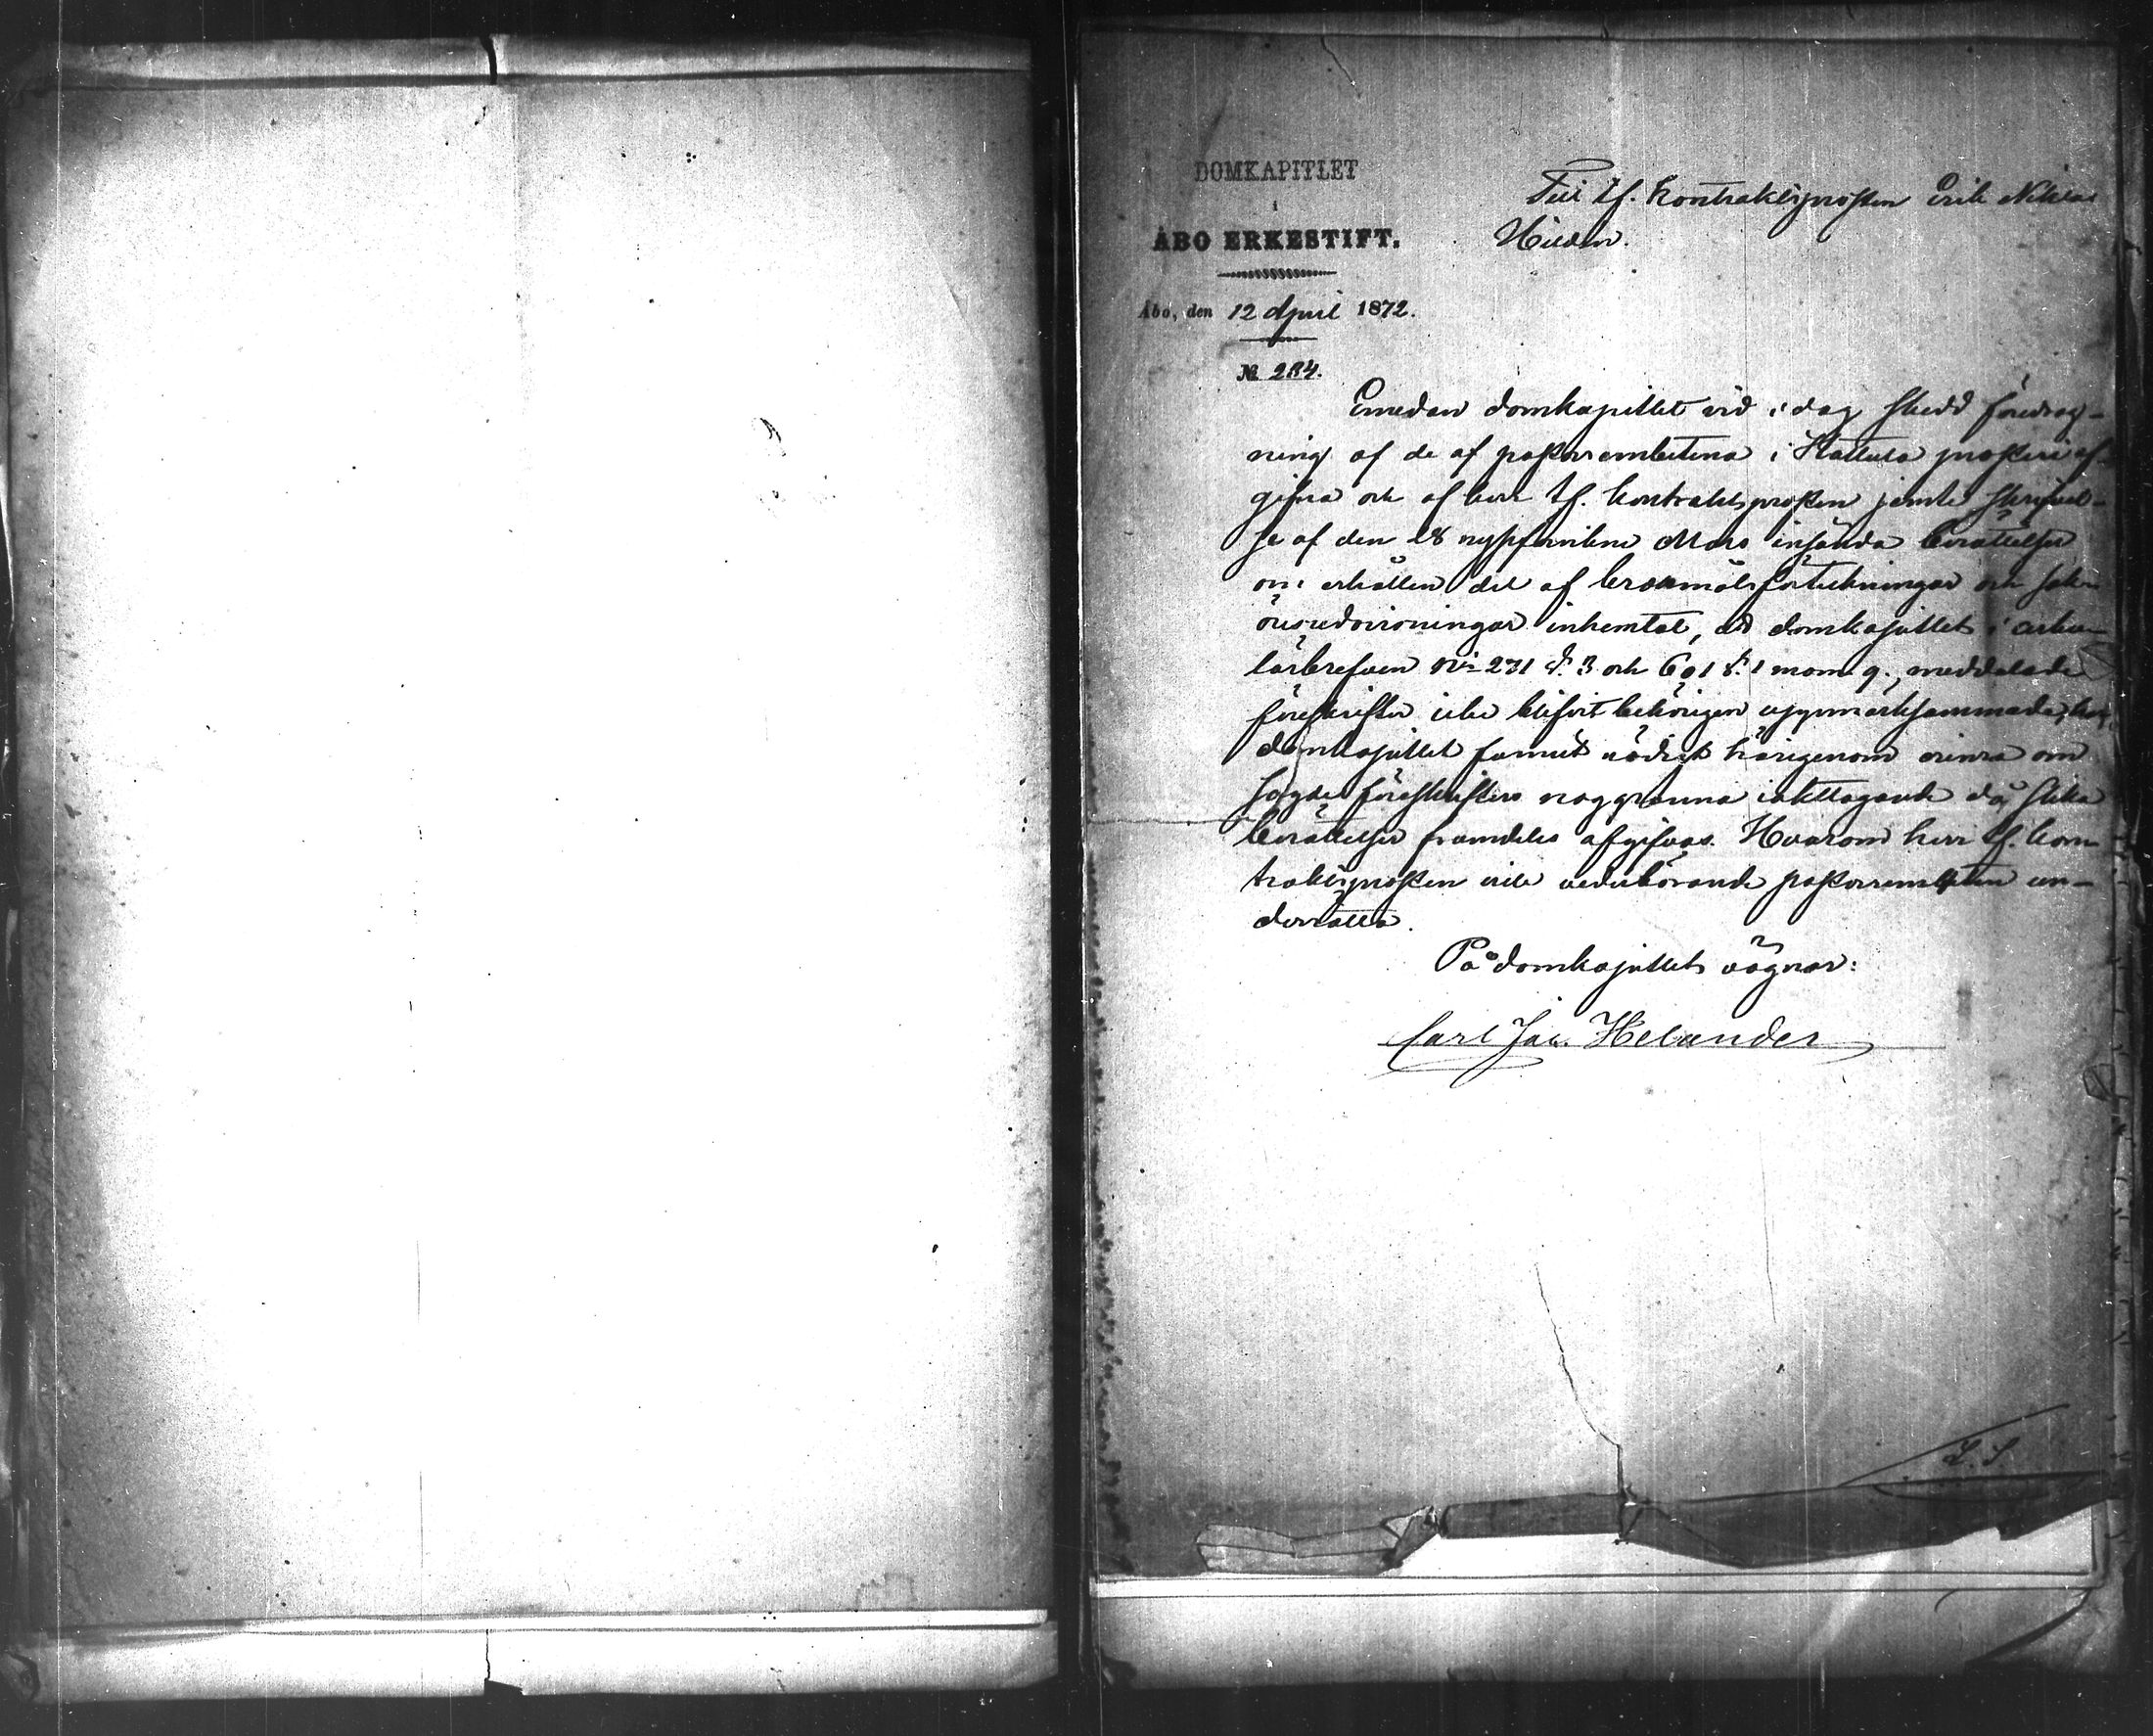 DOMKAPITLET
i
ÅBO ERKESTIFT.
Åbo, den 12 April 1872.
№ 284.
Till tf. Kontraktsprosten Erik Niklas
Hilden.
Emedan domkapitlet vid i dag skedd föredrag-
ning af de af pastorsembetena i Hattula prosteri af-
gifna och af herr tf. kontraktsprosten jemte skrifvel-
se af den 28 nyssförvikne Mars insända berättelser
om erhållen del af brottmålsförteckningar och sak-
öresredovisningar inhemtat, att domkapitlets i cirku-
lärbrefven № 231 §. 3 och 601 §. 1 mom. g., meddelade
föreskrifter icke blifvit behörigen uppmärksammade, har
domkapitlet funnit nödigt härigenom erinra om
sagde föreskrifters noggranna iakttagande då slika
berättelser framdeles afgifvas. Hvarom herr tf. kon-
traktsprosten ville vederbörande pastorsembeten un-
derrätta.
På domkapitlets vägnar:
Carl Jak. Helander
L. S.